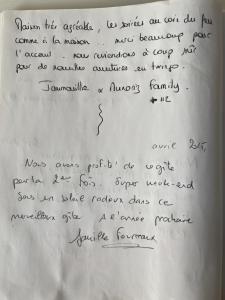 Maison très agréable, les soirées au coin du feu
comme à la maison .. merci beaucoup pour
l'accueil. nous reviendrons à coup sûr
pour de nouvelles aventures en
Family.
avril
Nous avons profité de ce gîte
pour la 2ème fois. Super week-end
sous un soleil radieux dans ce
merveilleux gîte A l'année prochaine
famille